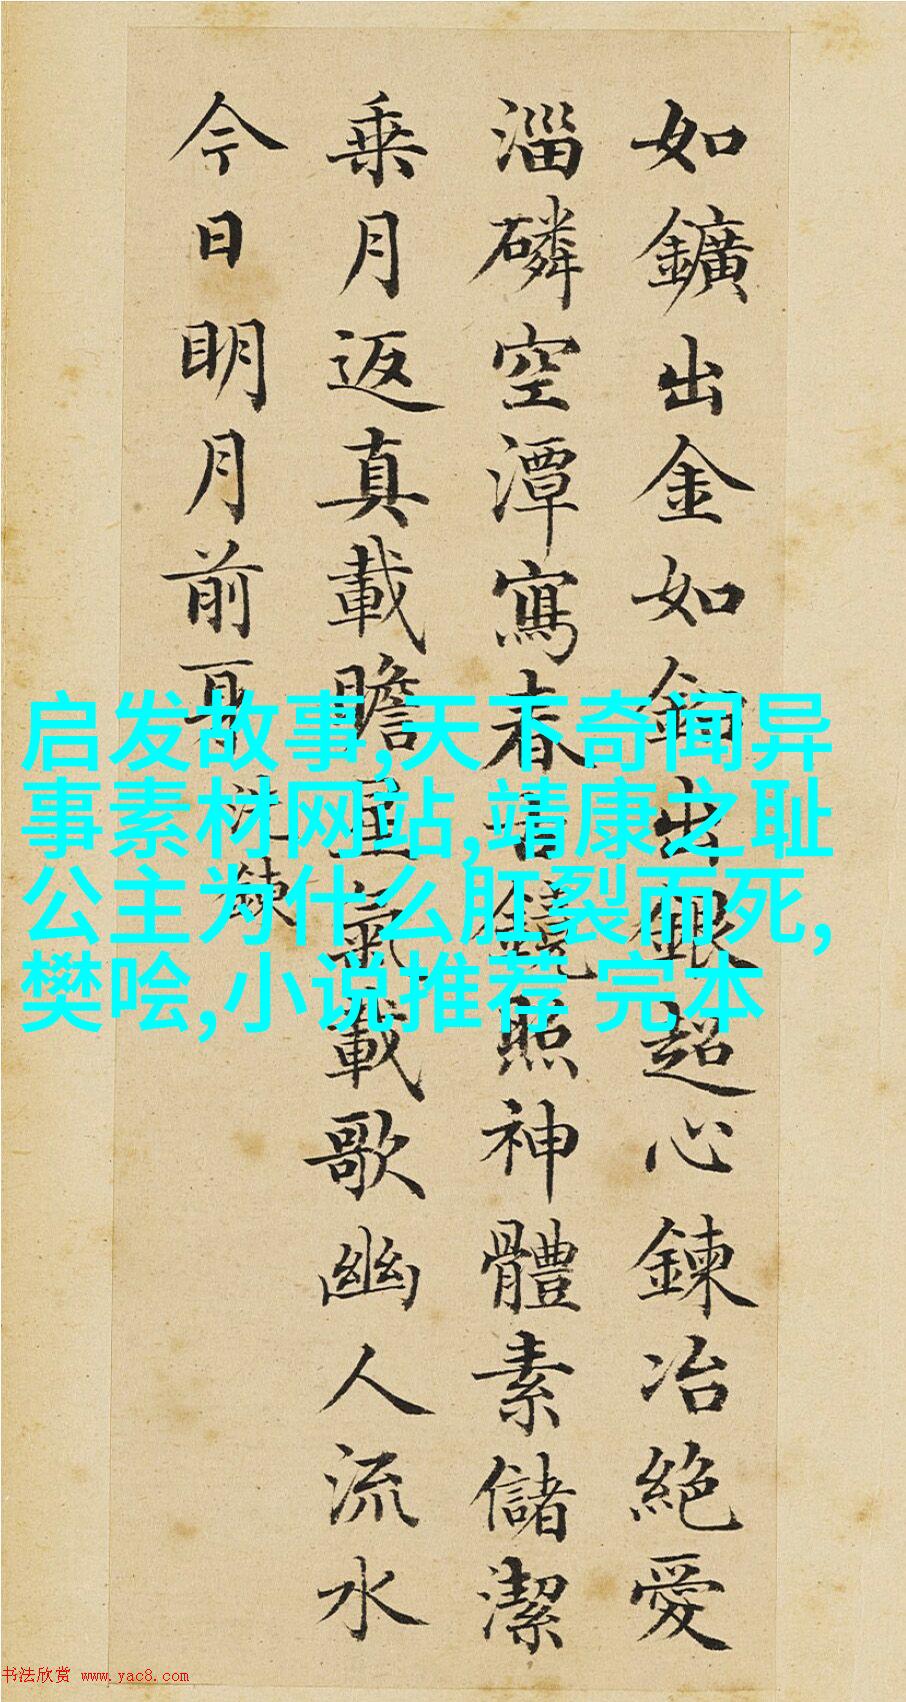 如鑛出金如鉛出銀超心鍊冶絕愛
淄磷空潭寫春古鏡照神體素儲潔
乗月返真載瞻星氣載歌幽人流水
今日明月前身 洗鍊
启发故事,天下奇闻异
事素材网站,靖康之耻
公主为什么肛裂而死,
樊哙,小说推荐 完本
书法欣赏 www.yac8.com